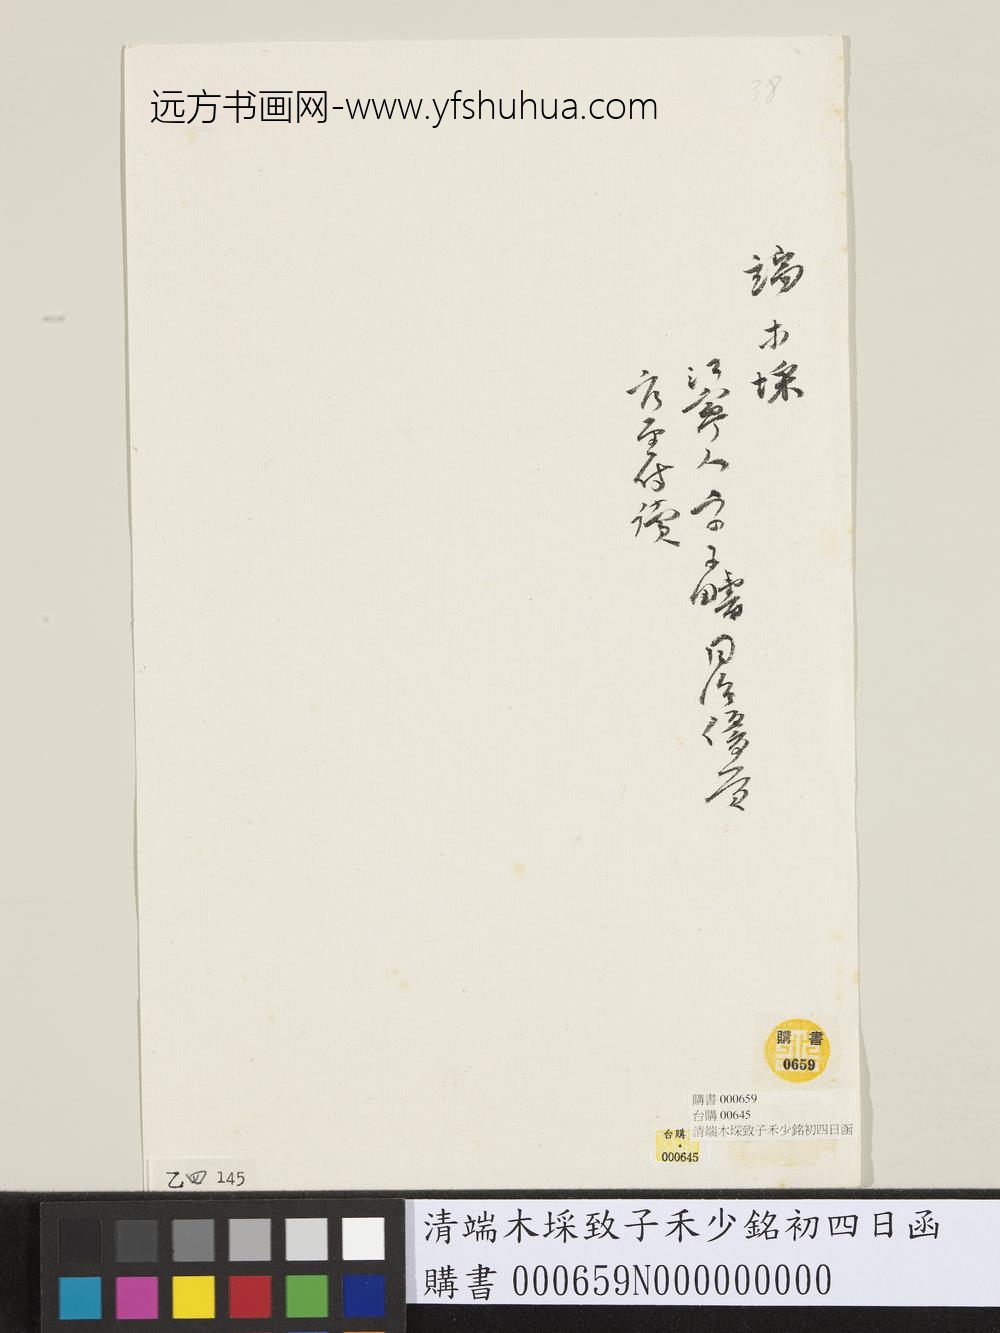 远方书画网-www.yfshuhua.com
38
端木埰
江寧人字子疇同治優貢
官至侍讀
購書
0659
購書 000659
台購 00645
清端木埰致子禾少銘初四日函
台購
000645
乙四 145
清端木埰致子禾少銘初四日函
購書 000659N000000000